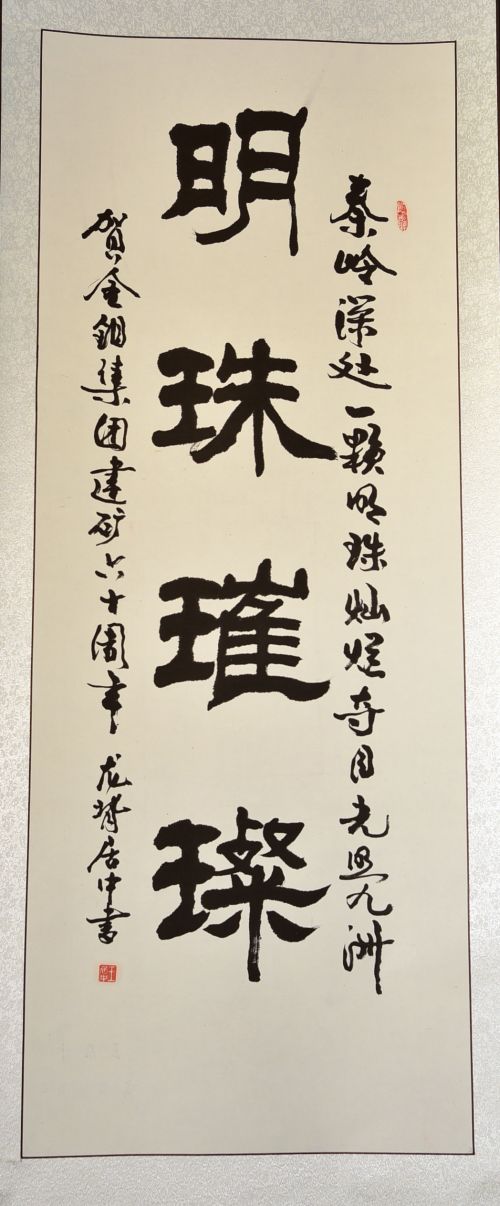 秦岭深处一颗明珠灿烂夺目光照九洲
明珠璀璨
贺金钼集团建矿六十周年 龙城居中书